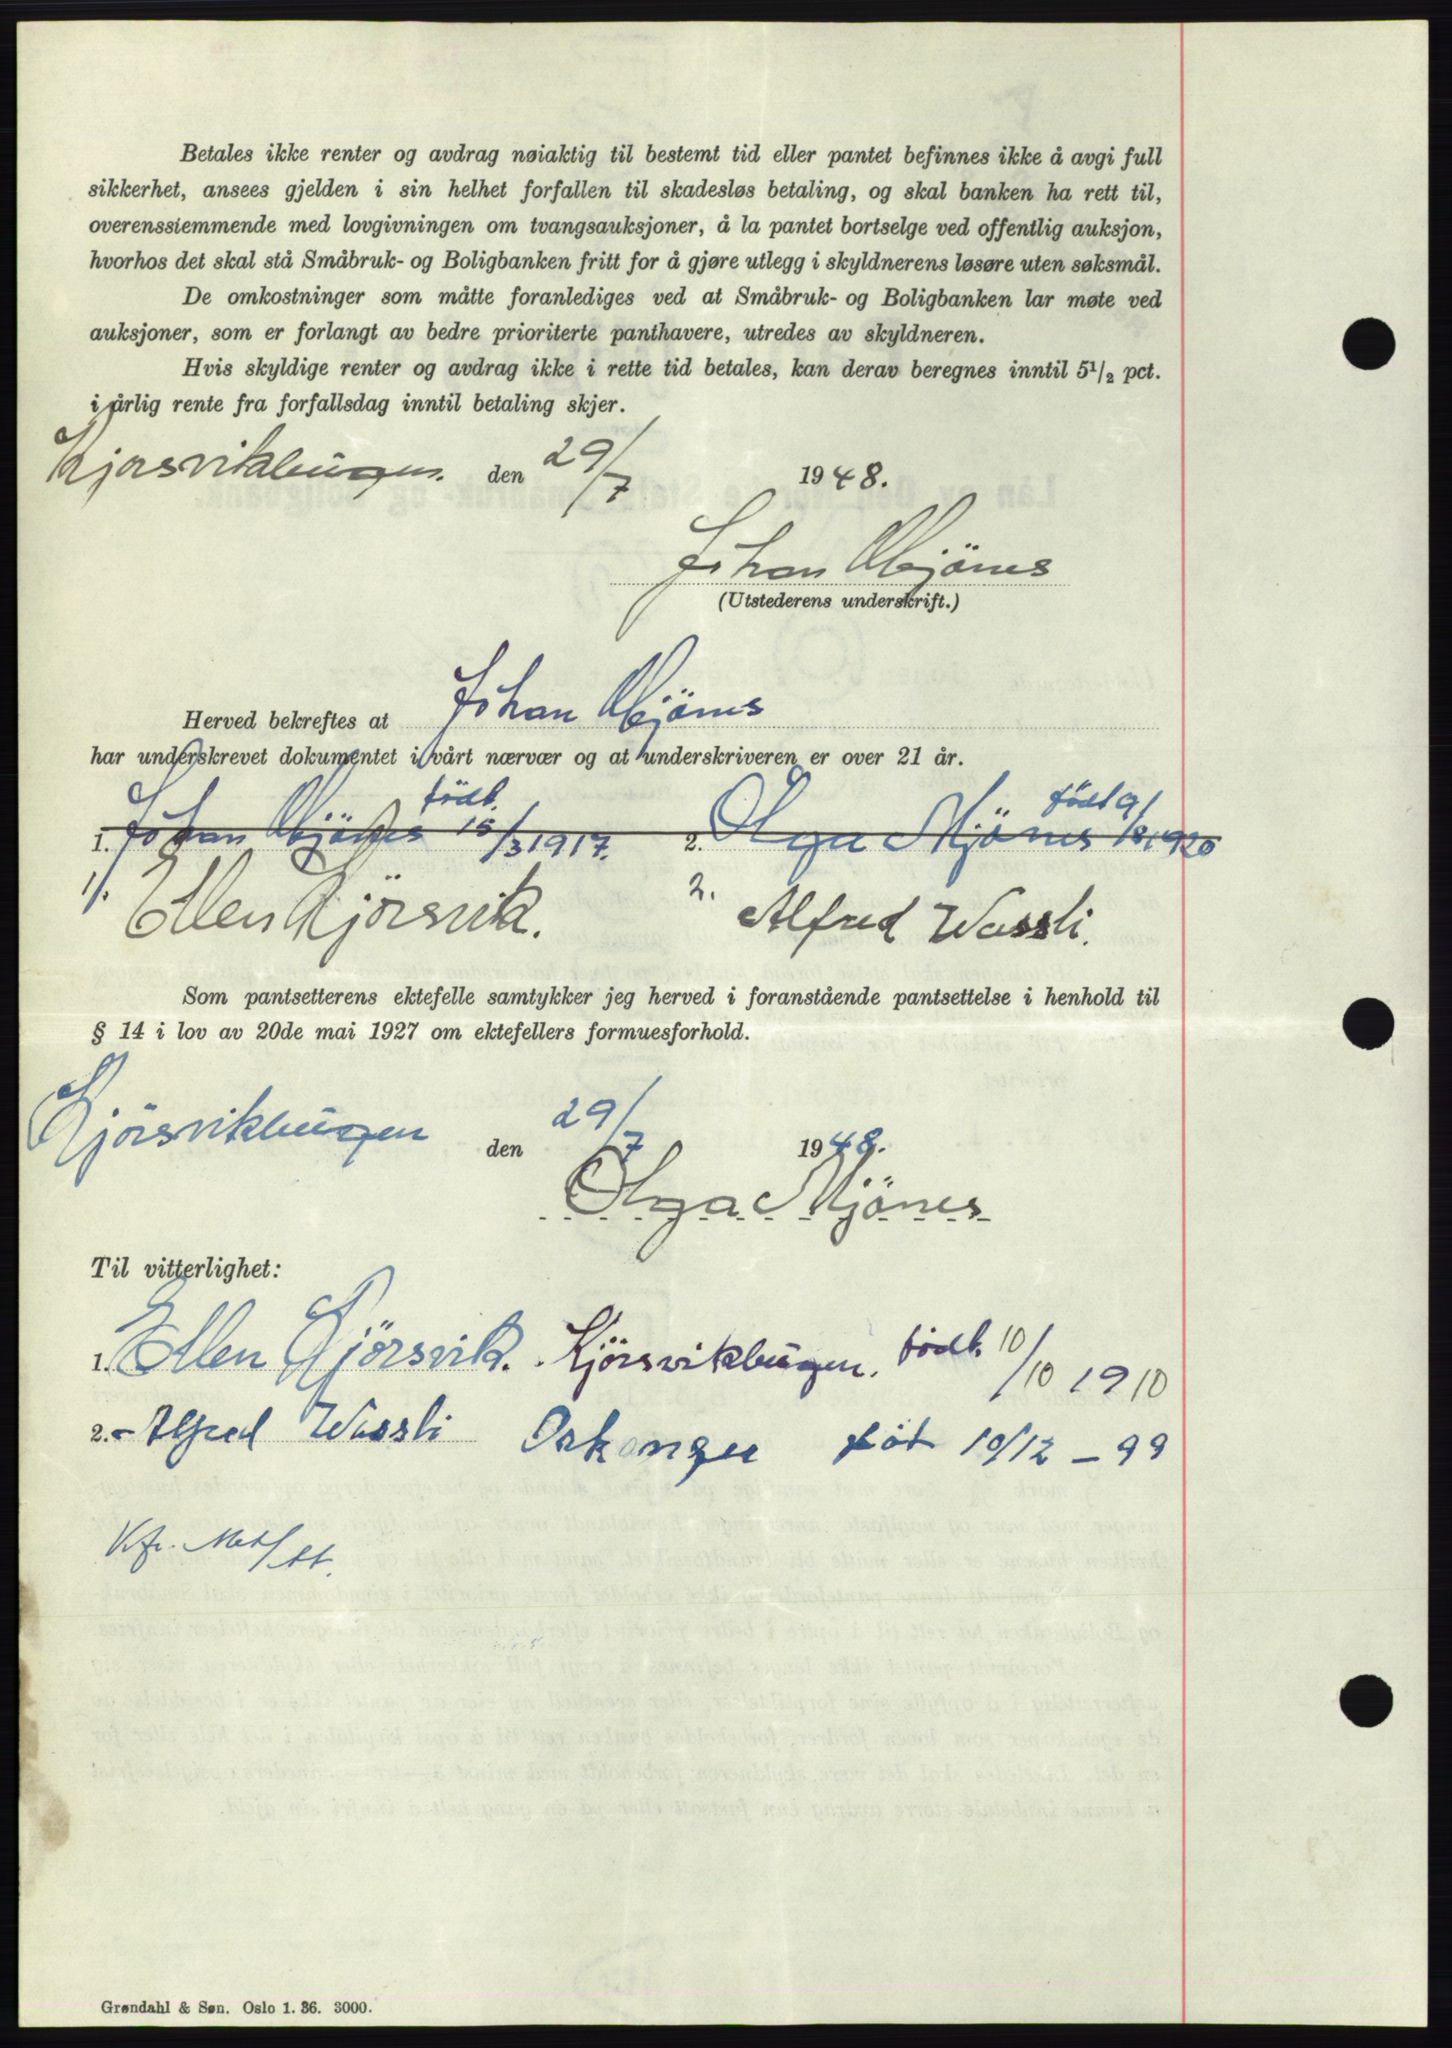 Betales ikke renter og avdrag nøiaktig til bestemt tid eller pantet befinnes ikke å avgi full
sikkerhet, ansees gjelden i sin helhet forfallen til skadesløs betaling, og skal banken ha rett til,
overenssiemmende med lovgivningen om tvangsauksjoner, å la pantet bortselge ved offentlig auksjon,
hvorhos det skal stå Småbruk- og Boligbanken fritt for å gjøre utlegg i skyldnerens løsøre uten søksmål.
De omkostninger som måtte foranlediges ved at Småbruk- og Boligbanken lar møte ved
auksjoner, som er forlangt av bedre prioriterte panthavere, utredes av skyldneren.
Hvis skyldige renter og avdrag ikke i rette tid betales, kan derav beregnes inntil 5½ pct.
i årlig rente fra forfallsdag inntil betaling skjer.
Kjørsvikbugen. den 29/7 1948.
Johan Mjönes
(Utstederens underskrift.)
Herved bekreftes at Johan Mjönes
har underskrevet dokumentet i vårt nærvær og at underskriveren er over 21 år.
1. Johan Mjönes født 15/3 1917. 2. Olga Mjönes født 9/8 1920
1/. Ellen Kjörsvik. 2. Alfred Wassli.
Som pantsetterens ektefelle samtykker jeg herved i foranstående pantsettelse i henhold til
§ 14 i lov av 20de mai 1927 om ektefellers formuesforhold.
Kjörsvikbugen den 29/7 1948.
Olga Mjönes
Til vitterlighet:
1. Ellen Kjörsvik. Kjörsvikbugen. født. 10/10 1910
2. Alfred Wassli Orkanger föt 10/12 – 99
Grøndahl & Søn. Oslo 1. 36. 3000.